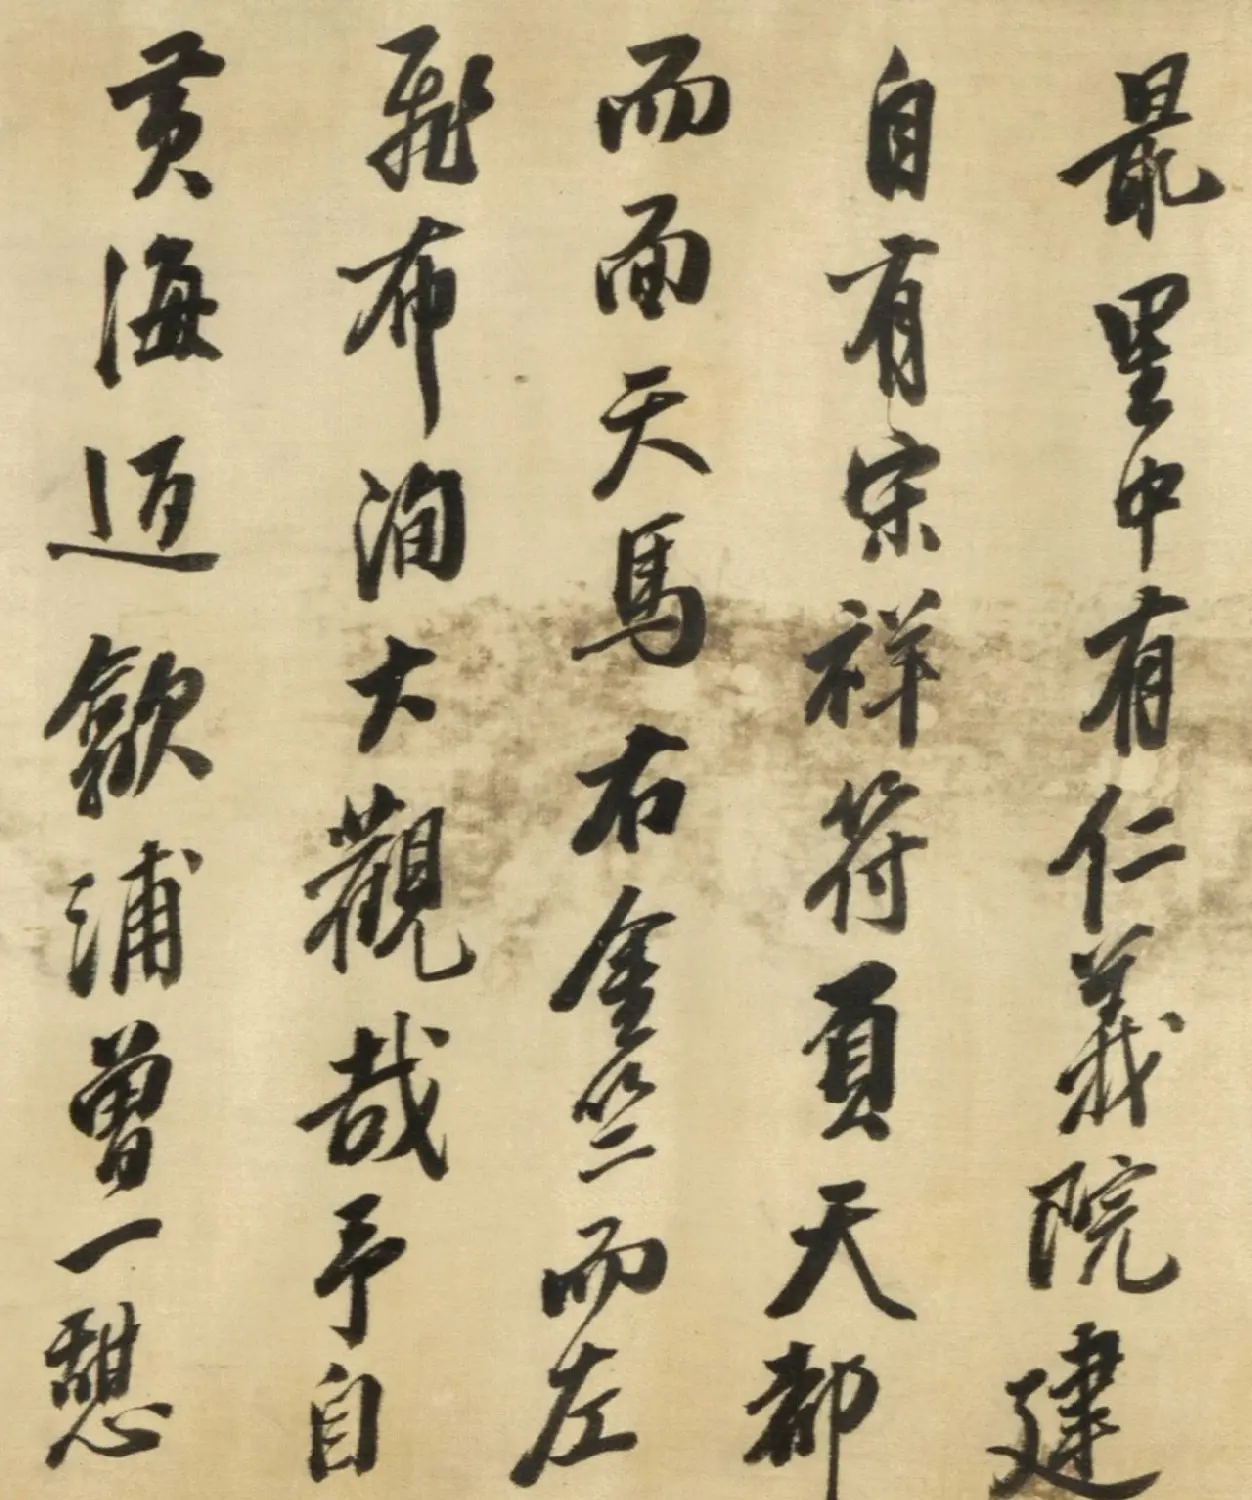 最里中有仁義院建
自有宋祥符負天都
而面天馬右金竺而左
飛布洵大觀哉予自
黃海迴歙浦曾一憩